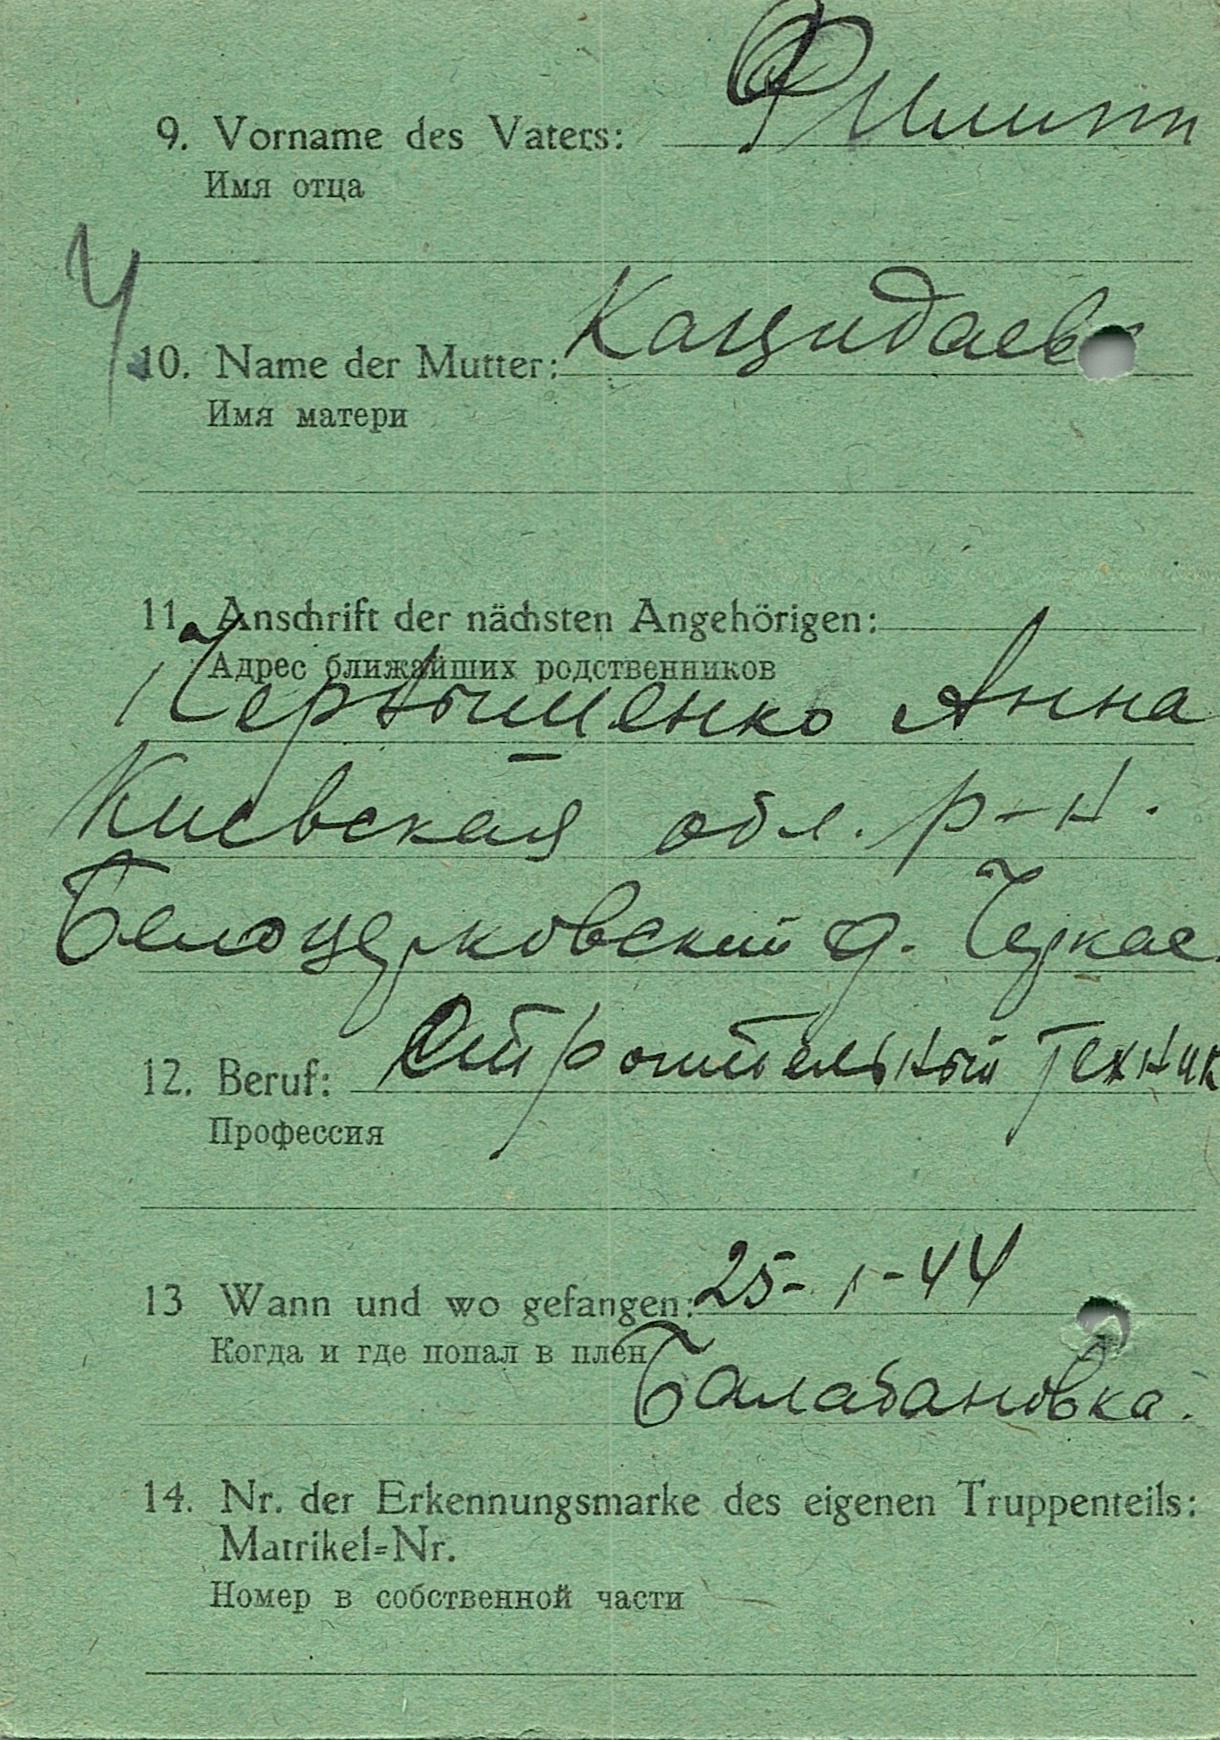 9. Vorname des Vaters: Филипп
Имя отца
Ч
10. Name der Mutter: Кацидаева
Имя матери
11. Anschrift der nächsten Angehörigen:
Адрес ближайших родственников
Анна
Киевская обл. р-н.
Белоцерковский д. Черкас.
12. Beruf: Строительный техник
Профессия
13 Wann und wo gefangen: 25-1-44
Когда и где попал в плен
Балабановка.
14. Nr. der Erkennungsmarke des eigenen Truppenteils:
Matrikel=Nr.
Номер в собственной части